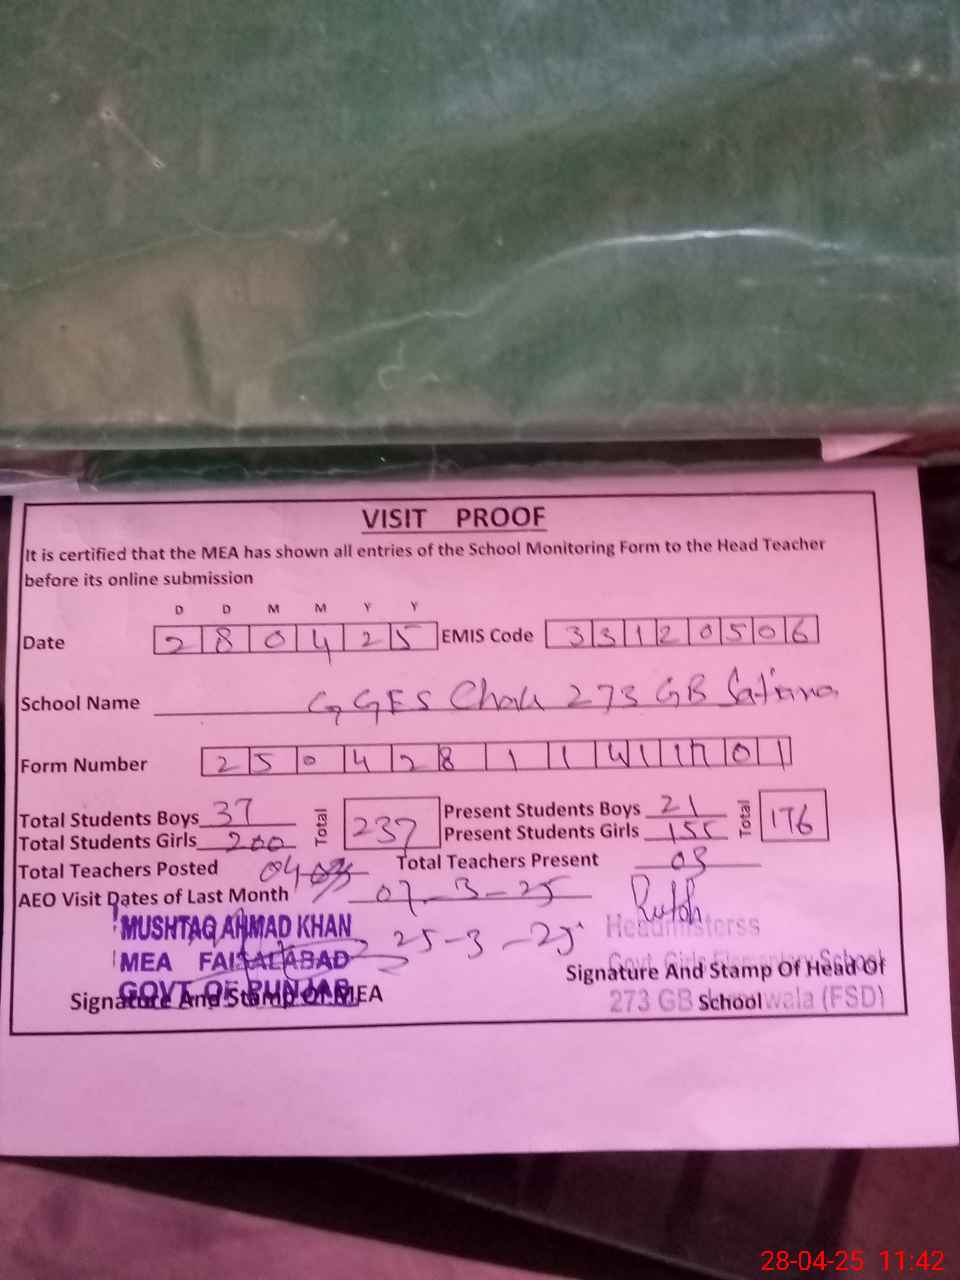 VISIT PROOF
It is certified that the MEA has shown all entries of the School Monitoring Form to the Head Teacher
before its online submission
D D M M Y Y
Date 2 8 0 4 2 5 EMIS Code 3 3 1 2 0 5 0 6
School Name GGES Chak 273 GB Satiana
Form Number 2 5 0 4 2 8 1 1 4 1 0 1
Total Students Boys 37 Total 237 Present Students Boys 21 Total 176
Total Students Girls 200 Present Students Girls 155
Total Teachers Posted 04 Total Teachers Present 03
AEO Visit Dates of Last Month 07-3-25
25-3-25
MUSHTAQ AHMAD KHAN
MEA FAISALABAD
GOVT. OF PUNJAB
Signature And Stamp Of MEA
Headmisterss
Govt. Girls Elementary School
273 GB (FSD)
Signature And Stamp Of Head Of
School
28-04-25 11:42